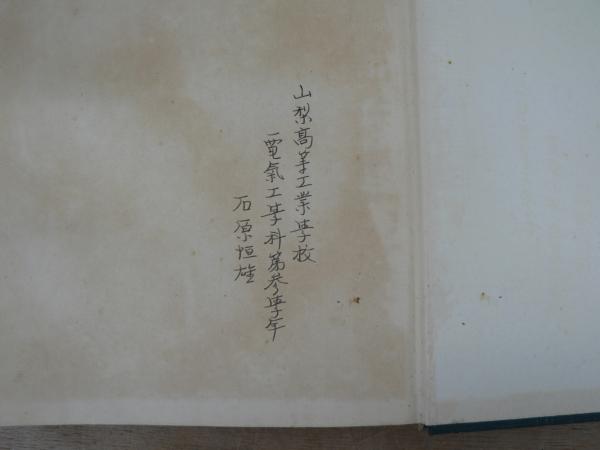 山梨高等工業學校
電氣工學科第参學年
石原恒雄